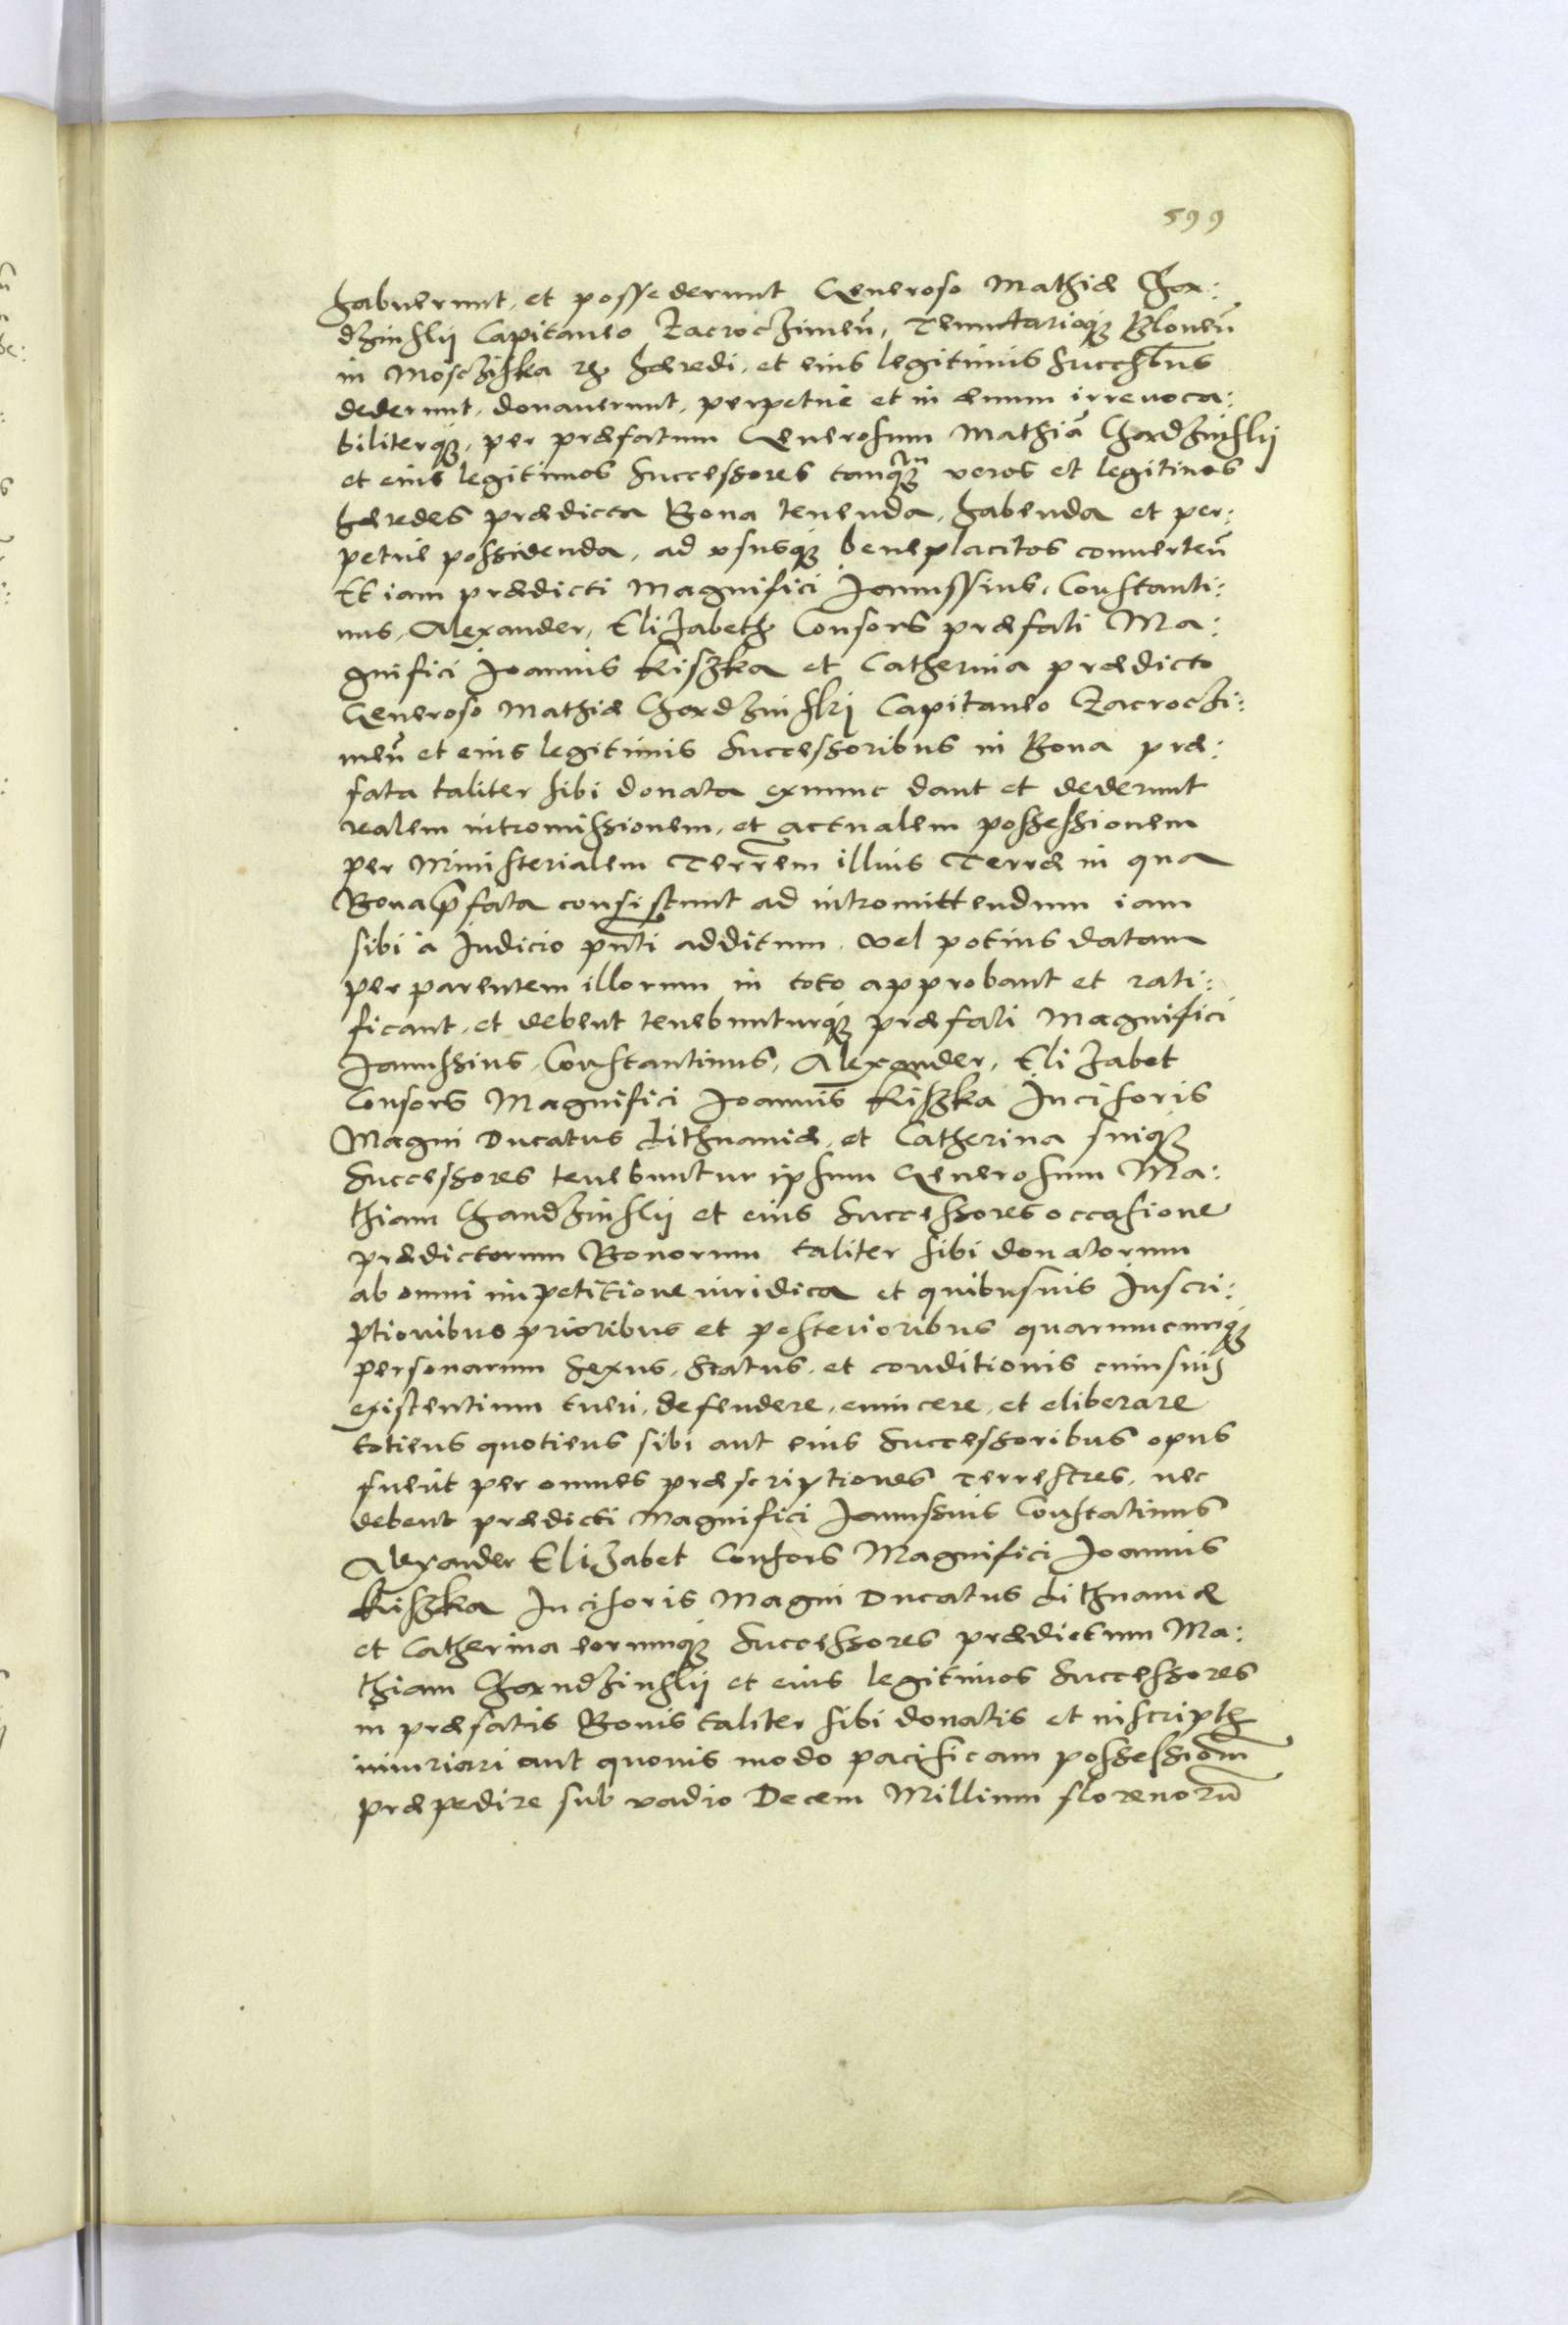 599
habuerunt, et possederunt Generoso Mathiæ Cha:
dzinskij Capitaneo Zacroczimeñ, Tenuttarioq3 Bloneñ
in Mosciska etc. hæredi, et eius legitimis Succesbus
dederunt, donauerunt, perpetuè et in æuum irreuoca:
biliterq3, per præfatum Generosum Mathiã Chadzinskij
et eius legitimos Successores tanq3m veros et legitimos
hæredes prædicta Bona tenenda, habenda et per:
petue possidenda, ad vsusq3 beneplacitos conuerteñ
Et iam prædicti Magnifici Janussius, Constanti:
nus, Alexander, Elizabeth Consors præfati Ma:
gnifici Joannis Kiszka et Catherina prædicto
Generoso Mathiæ Chadzinskj Capitaneo Zacroczi:
meñ et eius legitimis Successoribus in Bona præ:
fata taliter sibi donata exnunc dant et dederunt
realem intromissionem, et actualem possessionem
per Ministerialem Terrem illius Terræ in qua
Bona pfata consistunt ad intromittendum iam
sibi à Judicio pnti additum, vel potius datam
per parentem illorum in toto approbant et rati:
ficant, et debent tenebunturq3 præfati Magnifici
Janussius, Constantinus, Alexander, Elizabet
Consors Magnifici Joannis Kiszka Incisoris
Magni Ducatus Lithuaniæ, et Catherina suiq3
Successores tenebuntur ipsum Generosum Ma:
thiam Chandzinskij et eius Successores occasione
prædictorum Bonorum taliter sibi donatorum
ab omni impetitione iuridica et quibusuis Inscri:
ptionibus prioribus et posterioribus quarumcunq3
personarum sexus, status, et conditionis cuiusuis
existentium tueri, defendere, euincere, et eliberare
totiens quotiens sibi aut eius Successoribus opus
fuerit per omnes præscriptiones Terrestres, nec
debent prædicti Magnifici Janussius Constatinus
Alexander Elizabet Consors Magnifici Joannis
Kiszka Incisoris Magni Ducatus Lithuaniæ
et Catherina eorumq3 Successores prædictum Ma:
thiam Chandzinskij et eius legitimos Successores
in præfatis Bonis taliter sibi donatis et inscriptis
iniuriari aut quouis modo pacificam possessiom
præpedire sub vadio Decem Millium florenorũ